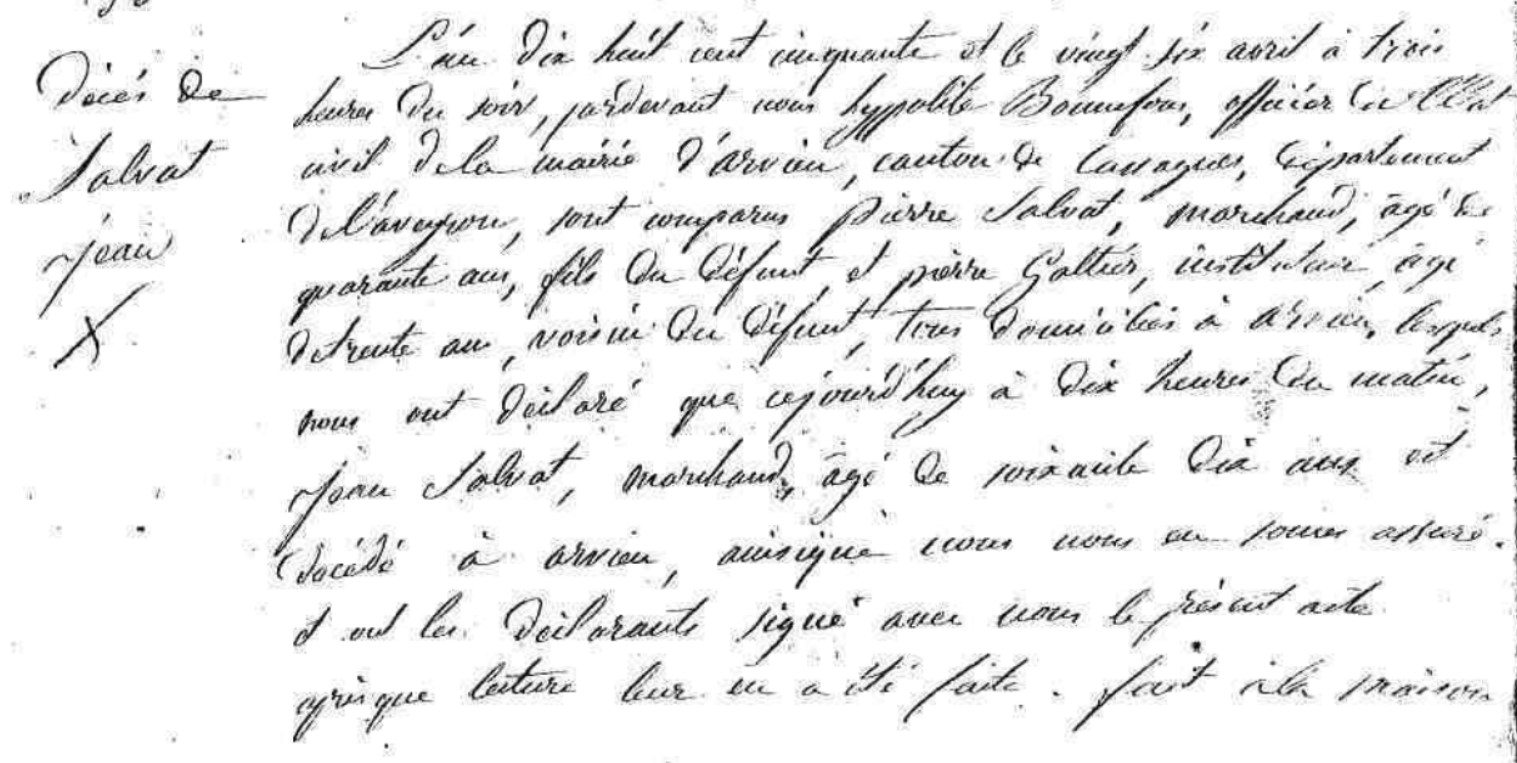 Décès de
Salvat
Jean
L'an dix huit cent cinquante et le vingt six avril à trois
heures du soir, pardevant nous hyppolite Bonnefous, officier de l'état
civil de la mairie d'arvieu, canton de Cassagnes, département
de l'aveyron, sont comparus pierre Salvat, marchand, âgé de
quarante ans, fils du défunt, et pierre Galtier, instituteur, âgé
de trente ans, voisin du défunt, tous domiciliés à arvieu, lesquels
nous ont déclaré que cejourd'huy à dix heures du matin,
Jean Salvat, marchand, âgé de soixante dix ans est
décédé à arvieu, ainsique nous nous en somes assuré.
et ont les déclarants signé avec nous le présent acte
après que lecture leur en a été faite. fait à la maison